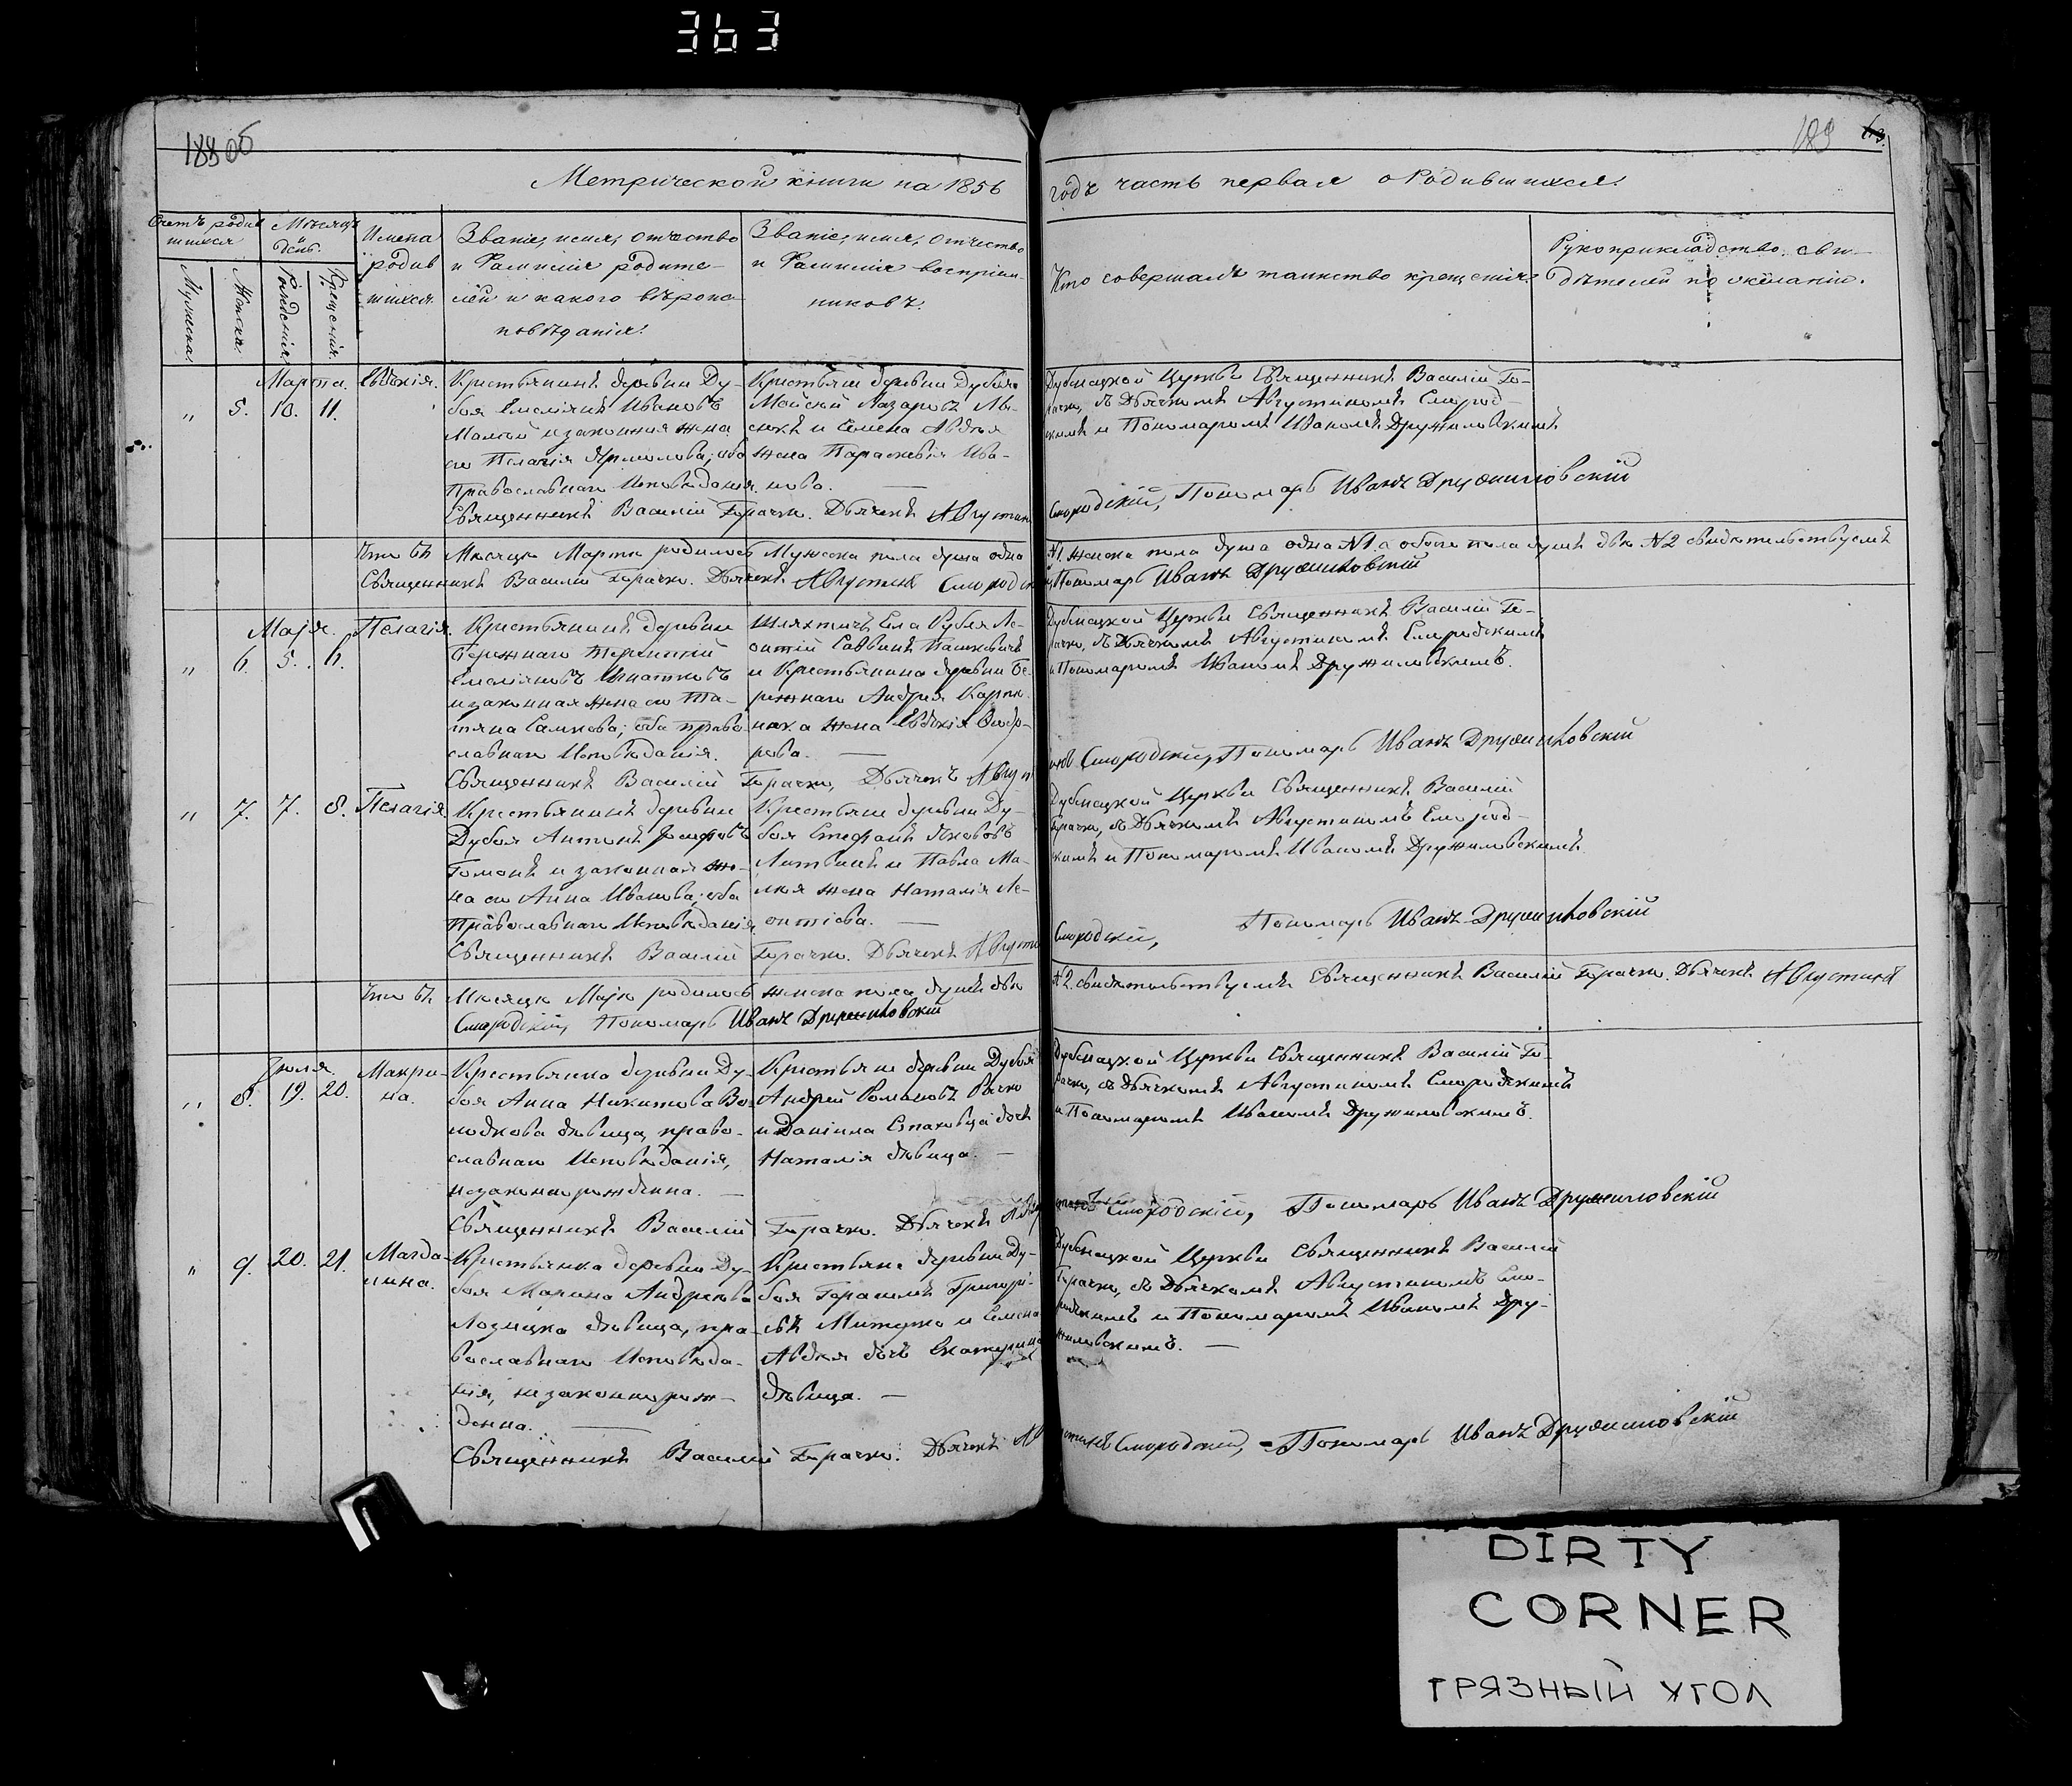 363
188 об
189
Метрической книги на 1856
годъ часть первая о Родившихся.
Счетъ родив
шихся
Мѣсяцъ
и
день.
Имена
родив
шихся.
Званіе, имя, отчество
и Фамилія родите-
лей и какого вѣроис-
повѣданія.
Званіе, имя, отчество
и Фамилія воспріем-
никовъ.
Кто совершалъ таинство крещенія.
Рукоприкладство сви-
дѣтелей по желанію.
Мужеска.
Женска.
Рожденія.
Крещенія.
Марта.
„ 5. 10. 11.
Евдокія.
Крестьянинъ деревни Ду-
боя Емеліянъ Ивановъ
и законная жена
его Пелагія Ярмолова; оба
Православнаго Исповѣданія.
Крестьяне деревни Дубоя
Мойсей Лазаровъ
и Семена Авдѣя
жена Параскевія Ива-
нова.
Дубецкой Церкви Священникъ Василій Го-
рачко, съ Дьячкомъ Августиномъ Смород-
скимъ и Пономаремъ Иваномъ Дружиловскимъ
Священникъ Василій Горачко. Дьячекъ Августинъ
Смородскій, Пономарь Иванъ Дружиловскій
Что въ Мѣсяцѣ Мартѣ родилось Мужеска пола душа одна
№1. женска пола душа одна №1. а обоего пола душъ двѣ №2 свидѣтельствуемъ
Священникъ Василій Горачко. Дьячекъ Августинъ Смородскій
Пономарь Иванъ Дружиловскій
Маія.
„ 6. 5. 6.
Пелагія.
Крестьянинъ деревни
Бережнаго Терентій
Емеліяновъ Игнатковъ
и законная жена его Та-
тяна Самкова; оба право-
славнаго Исповѣданія.
Шляхтичъ Села Рубля Ле-
онтій Саввинъ Пашкевичъ
и Крестьянина деревни Бе-
режнаго Андрея Карпи-
нака жена Евдокія Ѳедо-
рова.
Дубецкой Церкви Священникъ Василій Го-
рачко, съ Дьячкомъ Августиномъ Смородскимъ
и Пономаремъ Иваномъ Дружиловскимъ.
Священникъ Василій Горачко, Дьячекъ Авгус
тинъ Смородскій, Пономарь Иванъ Дружиловскій
„ 7. 7. 8.
Пелагія
Крестьянинъ деревни
Дубоя Антонъ Іосифовъ
Гомонъ и законная же-
на его Анна Иванова; оба
Православнаго Исповѣданія.
Крестьяне деревни Ду-
боя Стефанъ Якововъ
Литвинъ и Павла Ма-
лея жена Наталія Ле-
онтіева.
Дубецкой Церкви Священникъ Василій
Горачко, съ Дьячкомъ Августиномъ Смород-
скимъ и Пономаремъ Иваномъ Дружиловскимъ.
Священникъ Василій Горачко. Дьячекъ Августинъ
Смородскій, Пономарь Иванъ Дружиловскій
Что въ Мѣсяцѣ Маіѣ родилось женска пола душъ двѣ
№2. свидѣтельствуемъ Священникъ Василій Горачко. Дьячекъ Августинъ
Смородскій, Пономарь Иванъ Дружиловскій
Іюля.
„ 8. 19. 20.
Макри-
на.
Крестьянка деревни Ду-
боя Анна Никитова Во-
лодкова дѣвица, право-
славнаго Исповѣданія,
незаконнорожденна.
Крестьяне деревни Дубоя
Андрей Романовъ Рачко
и Даніила Стаховца дочь
Наталія дѣвица.
Дубецкой Церкви Священникъ Василій Го-
рачко, съ Дьячкомъ Августиномъ Смородскимъ
и Пономаремъ Иваномъ Дружиловскимъ.
Священникъ Василій Горачко. Дьячекъ Авгус
тинъ Смородскій, Пономарь Иванъ Дружиловскій
„ 9. 20. 21.
Магда-
лина.
Крестьянка деревни Ду-
боя Марина Андреева
Лозицка дѣвица, пра-
вославнаго Исповѣда-
нія, незаконнорож-
денна.
Крестьяне деревни Ду-
боя Герасимъ Григорі-
евъ Мицура и Семена
Авдѣя дочь Екатерина
дѣвица.
Дубецкой Церкви Священникъ Василій
Горачко, съ Дьячкомъ Августиномъ Смо-
родскимъ и Пономаремъ Иваномъ Дру-
жиловскимъ.
Священникъ Василій Горачко. Дьячекъ Ав
густинъ Смородскій, Пономарь Иванъ Дружиловскій
DIRTY
CORNER
ГРЯЗНЫЙ УГОЛ